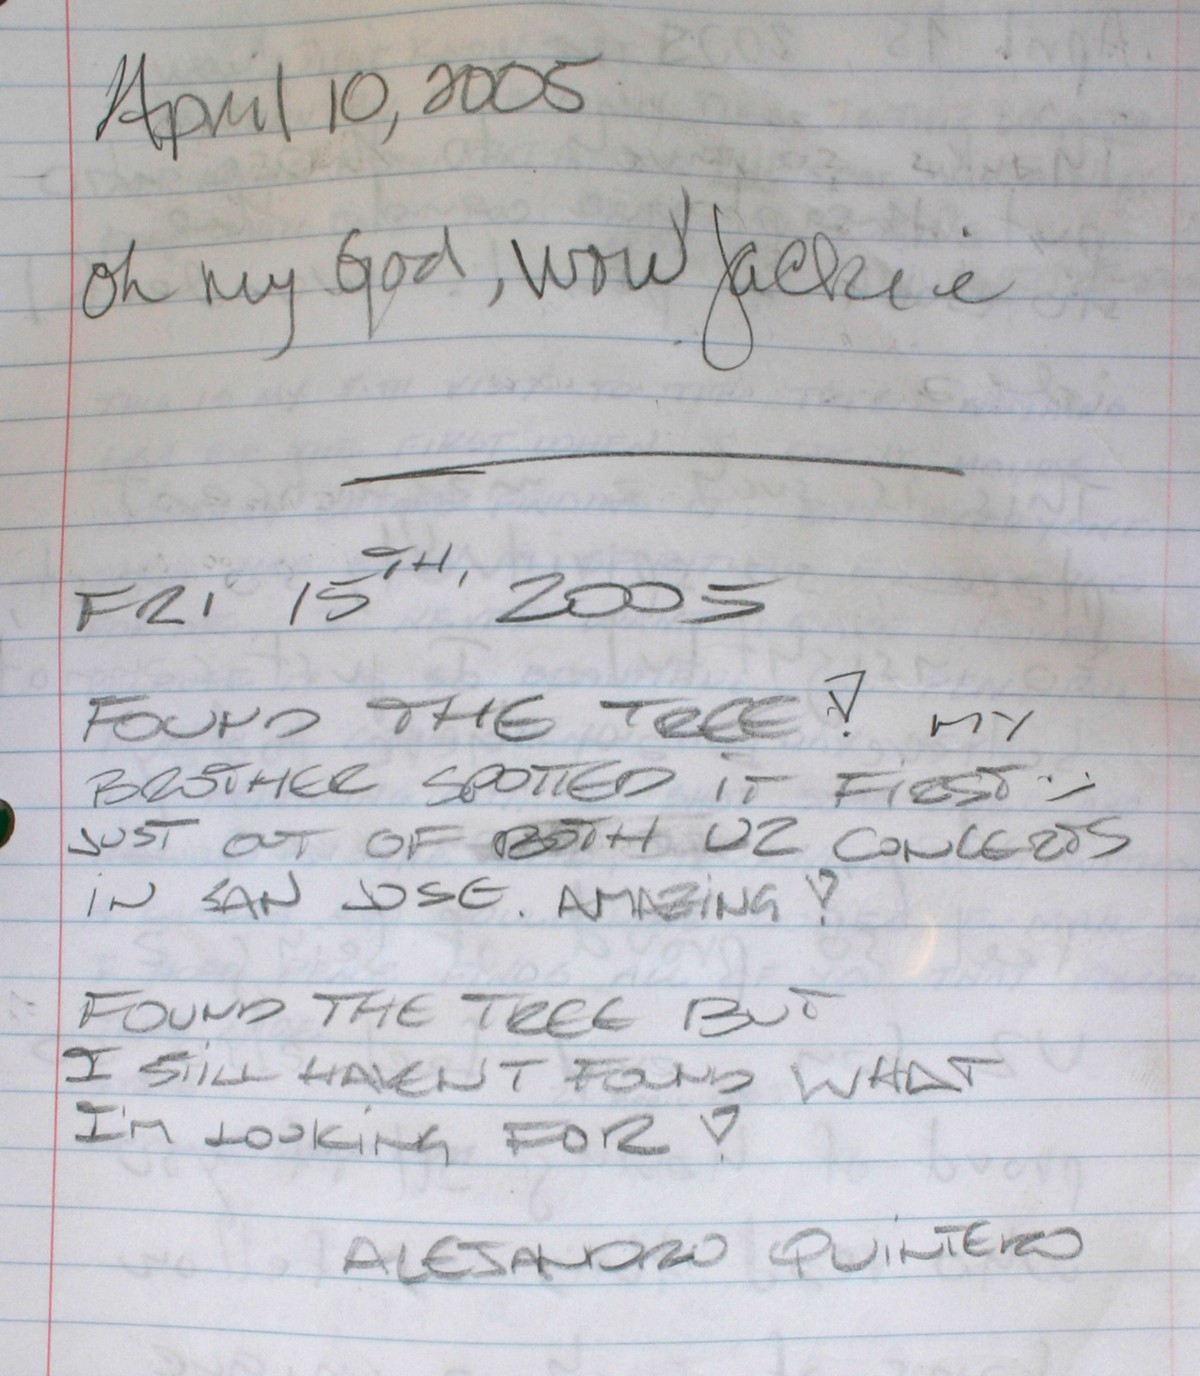 April 10, 2005
Oh my God, wow Jackie
FRI 15TH, 2005
FOUND THE TREE! MY
BROTHER SPOTTED IT FIRST :-
JUST OUT OF BOTH U2 CONCERTS
IN SAN JOSE. AMAZING!
FOUND THE TREE BUT
I STILL HAVEN'T FOUND WHAT
I'M LOOKING FOR!
ALEJANDRO QUINTERO